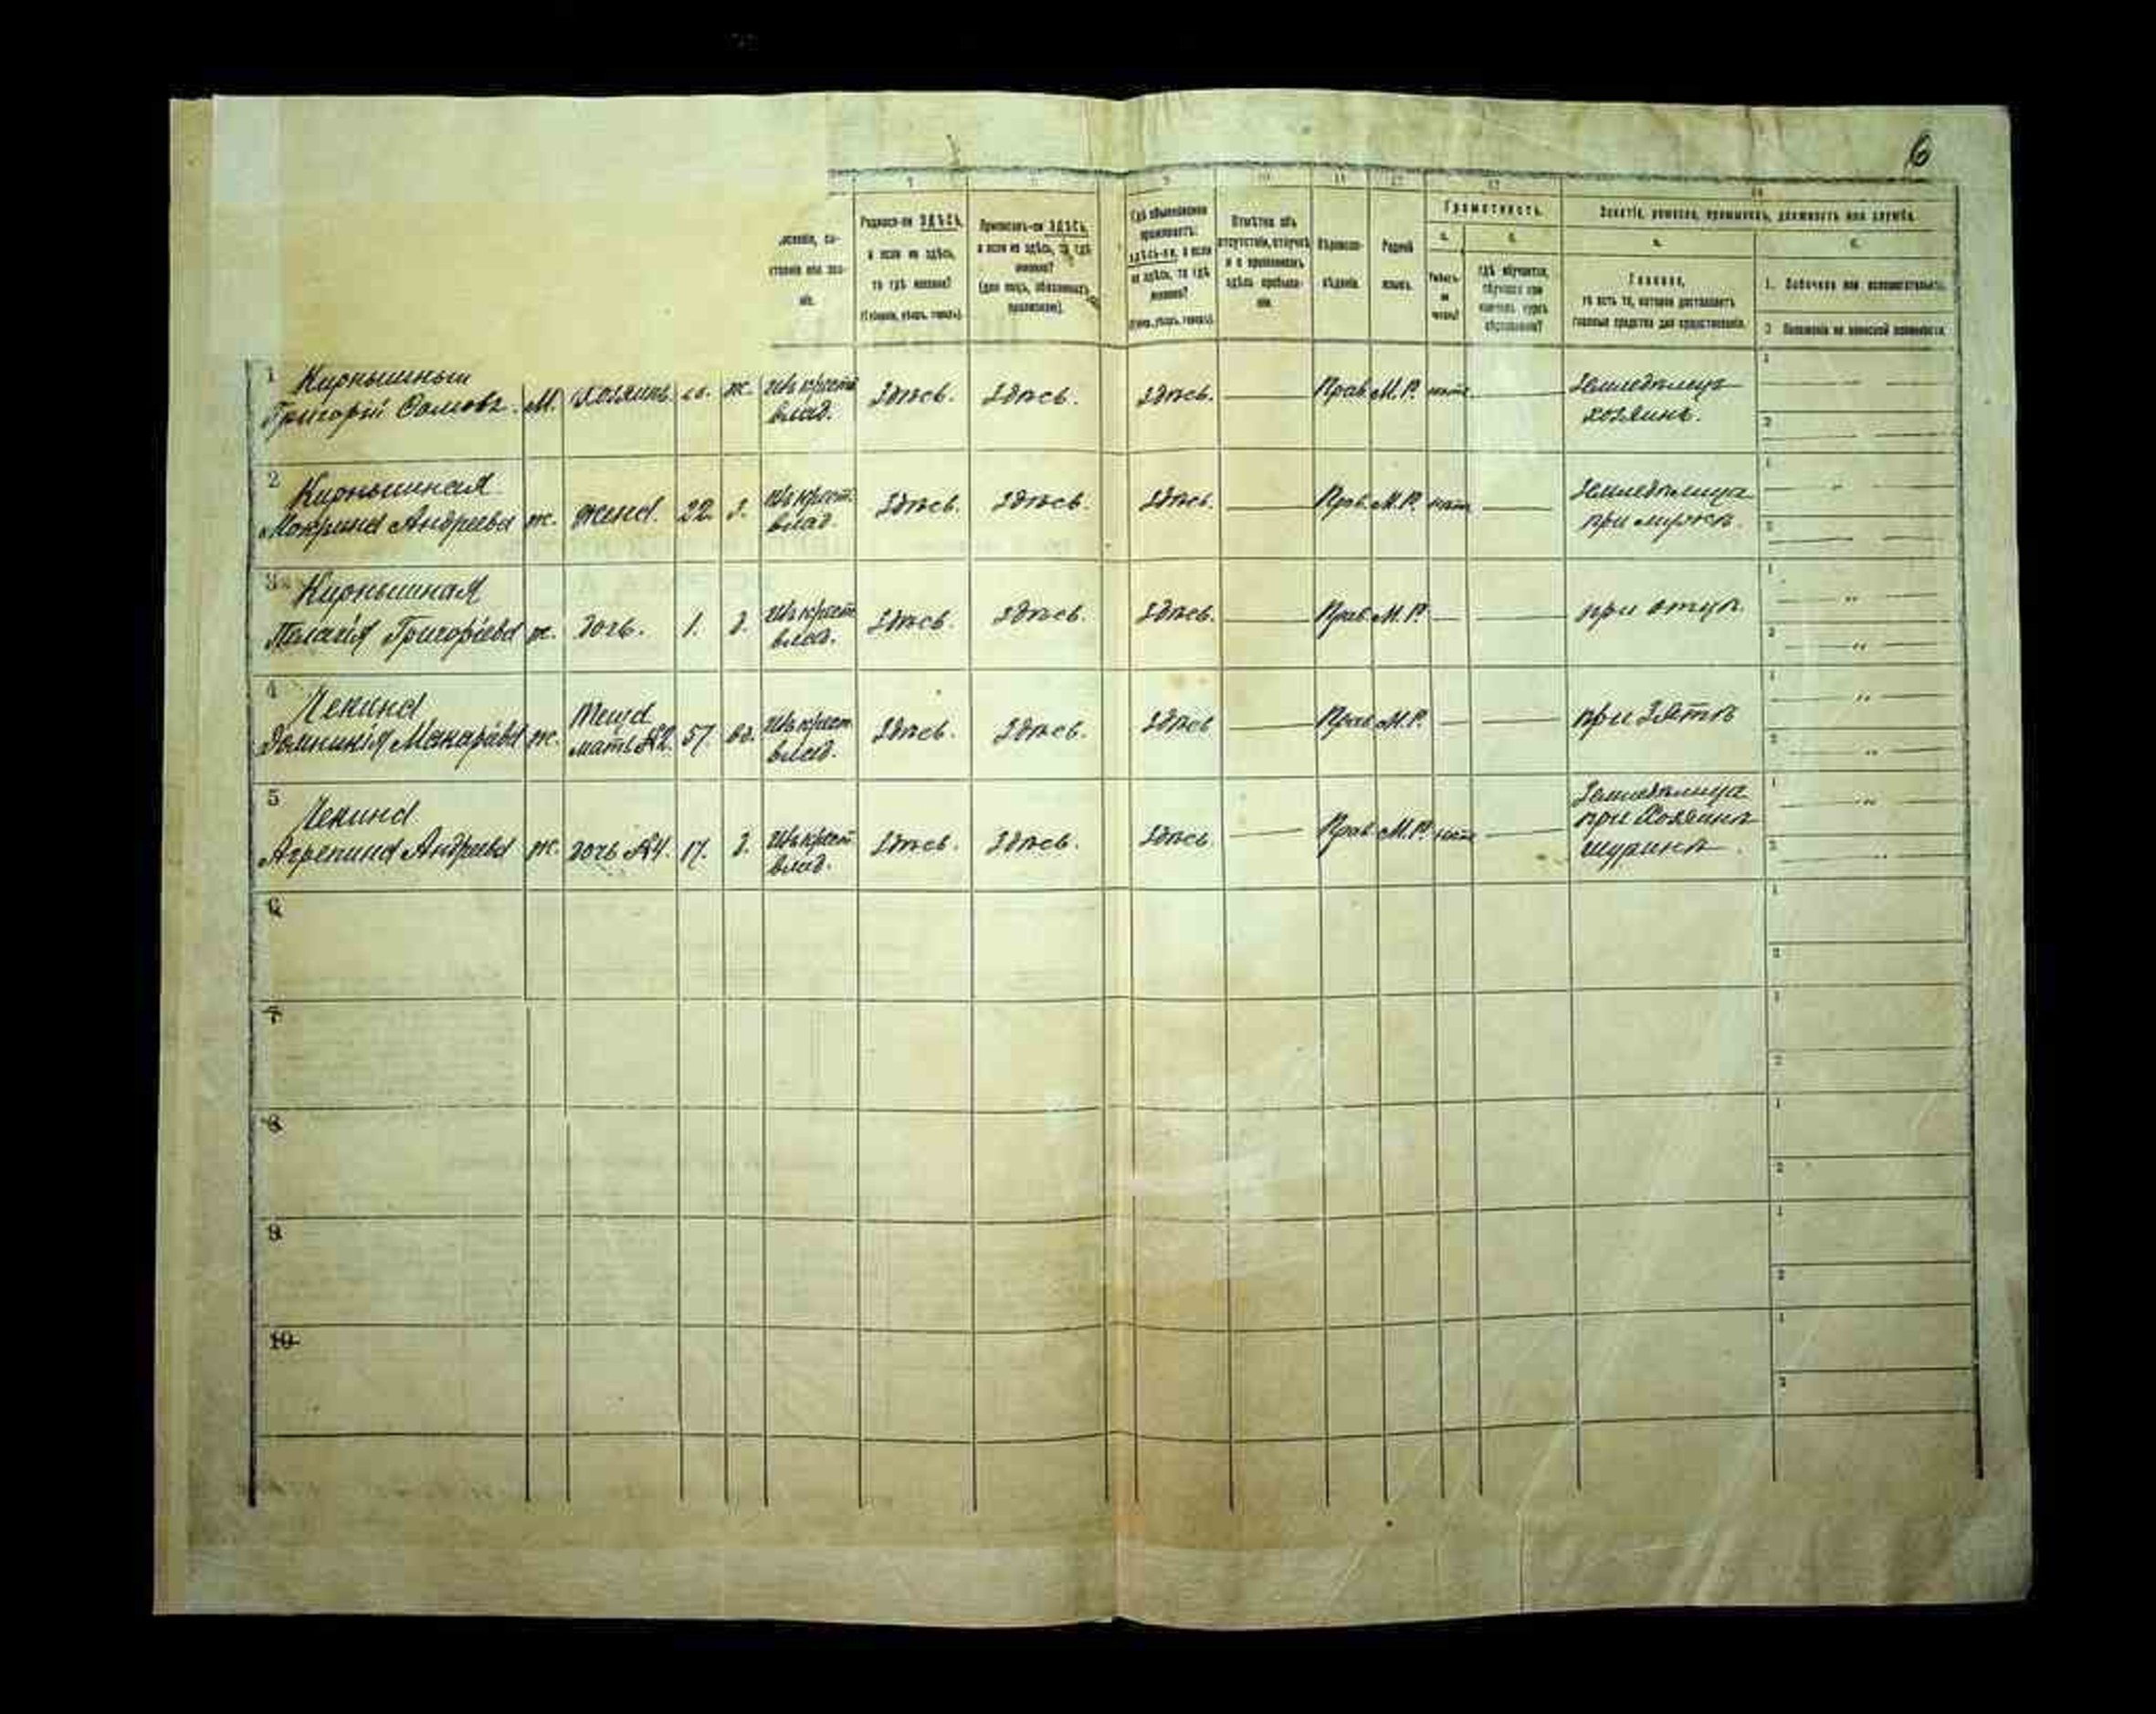 6
7 8 9 10 11 12 13 14
Грамотность.
Занятіе, ремесло, промыселъ, должность или служба.
Родился-ли ЗДѢСЬ,
а если не здѣсь,
то гдѣ именно?
(Губернія, уѣздъ, городъ).
Приписанъ-ли ЗДѢСЬ,
а если не здѣсь, то гдѣ
именно?
(для лицъ, обязанныхъ
припиской).
Гдѣ обыкновенно
проживаетъ:
здѣсь-ли, а если
не здѣсь, то гдѣ
именно?
(Губер., уѣздъ, городъ).
Отмѣтка объ
отсутствіи, отлучкѣ
и о временномъ
здѣсь пребыва-
ніи.
Вѣроиспо-
вѣданіе.
Родной
языкъ.
а.
б.
Умѣетъ-
ли
читать?
гдѣ обучается,
обучался или
кончилъ курсъ
образованія?
а.
Главное,
то есть то, которое доставляетъ
главныя средства для существованія.
б.
1. Побочное или вспомогательное.
2. Положеніе по воинской повинности.
1 Григорій м. хозяинъ ж. изъ крест. влад. Здѣсь. Здѣсь. Здѣсь. Прав. М.Р. нѣтъ. Земледѣлецъ хозяинъ.
2 Мокрина Андреева ж. жена. 22. з. изъ крест. влад. Здѣсь. Здѣсь. Здѣсь. Прав. М.Р. нѣтъ Земледѣлица при мужѣ.
3 Пелагія Григоріева ж. дочь. 1. д. изъ крест. влад. Здѣсь. Здѣсь. Здѣсь. Прав. М.Р. при отцѣ.
4 Домникія Макарова ж. Теща мать №2. 57. вд. изъ крест. влад. Здѣсь. Здѣсь. Здѣсь Прав. М.Р. при зятѣ
5 Агрепина Андреева ж. дочь №4. 17. д. изъ крест. влад. Здѣсь. Здѣсь. Здѣсь Прав. М.Р. нѣтъ Земледѣлица при хозяинѣ шуринѣ.
6
7
8
9
10